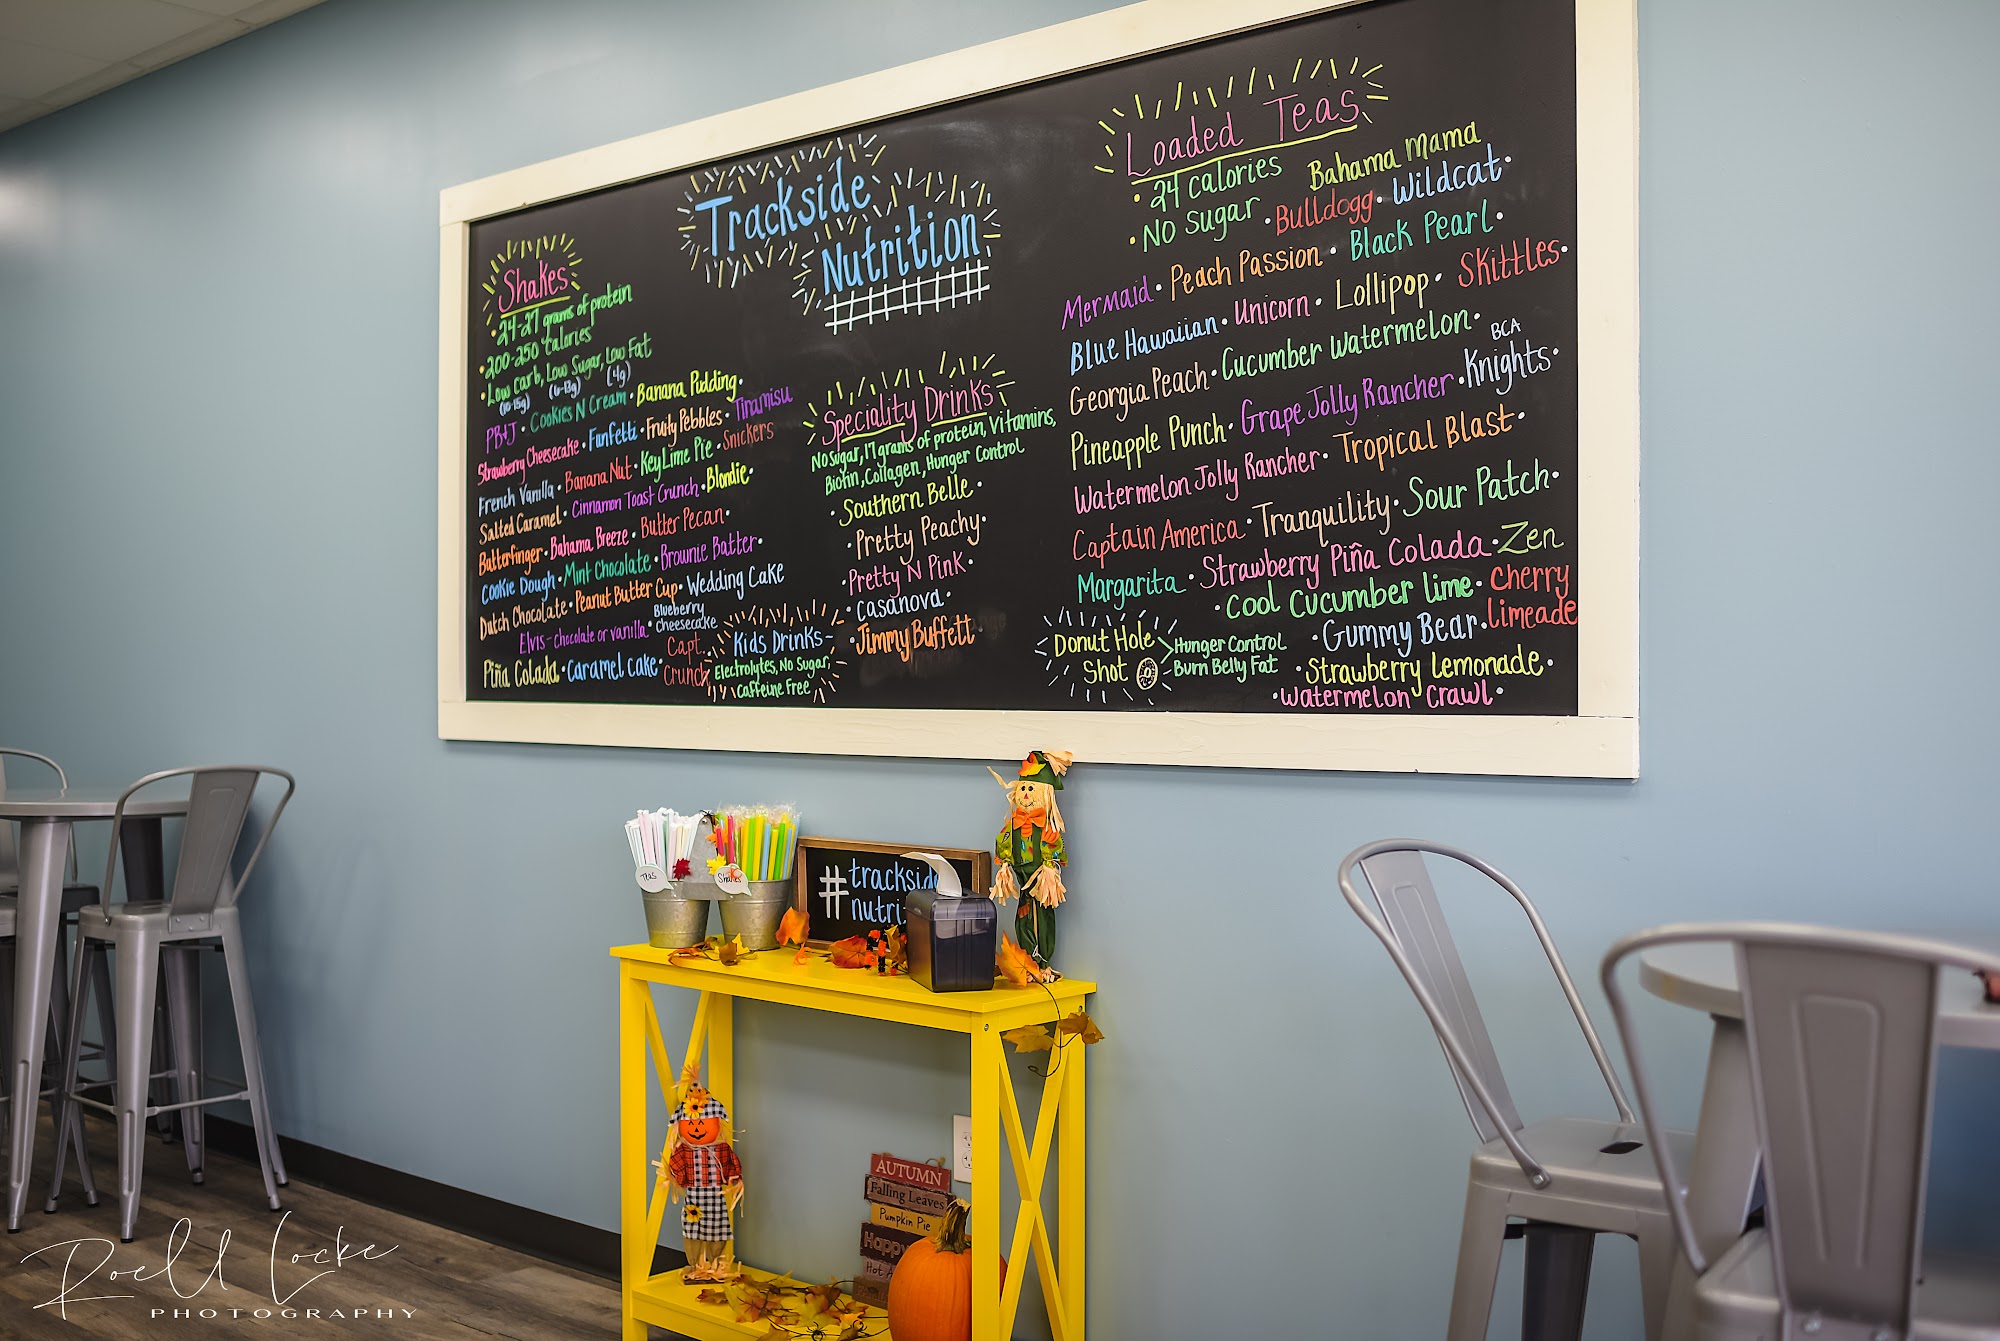 Trackside
Nutrition
Shakes
• 24-27 grams of protein
• 200-250 calories
• Low carb, Low Sugar, Low Fat
(10-15g) (6-13g) (4g)
PB&J • Cookies N Cream • Banana Pudding •
Strawberry Cheesecake • Funfetti • Fruity Pebbles • Tiramisu
French Vanilla • Banana Nut • Key Lime Pie • Snickers
Salted Caramel • Cinnamon Toast Crunch • Blondie •
Butterfinger • Bahama Breeze • Butter Pecan •
Cookie Dough • Mint Chocolate • Brownie Batter •
Dutch Chocolate • Peanut Butter Cup • Wedding Cake
Elvis - chocolate or vanilla • Blueberry
Cheesecake
Piña Colada • Caramel Cake • Capt.
Crunch
Kids Drinks -
Electrolytes, No Sugar,
Caffeine Free
Speciality Drinks
No Sugar, 17 grams of protein, Vitamins,
Biotin, Collagen, Hunger Control
• Southern Belle •
• Pretty Peachy •
• Pretty N Pink •
• Casanova •
• Jimmy Buffett •
Loaded Teas
• 24 calories
• No Sugar
Bahama Mama
• Bulldogg • Wildcat •
Mermaid • Peach Passion • Black Pearl •
Blue Hawaiian • Unicorn • Lollipop • Skittles •
Georgia Peach • Cucumber Watermelon •
Pineapple Punch • Grape Jolly Rancher • BCA
Knights •
Watermelon Jolly Rancher • Tropical Blast •
Captain America • Tranquility • Sour Patch •
Margarita • Strawberry Piña Colada • Zen
• Cool Cucumber Lime • Cherry
Limeade
• Gummy Bear •
• Strawberry Lemonade •
• Watermelon Crawl •
Donut Hole
Shot
Hunger Control
Burn Belly Fat
Teas
Shakes
#trackside
nutri
AUTUMN
Falling Leaves
Pumpkin Pie
Happy
Hot
Roeld Locke
PHOTOGRAPHY